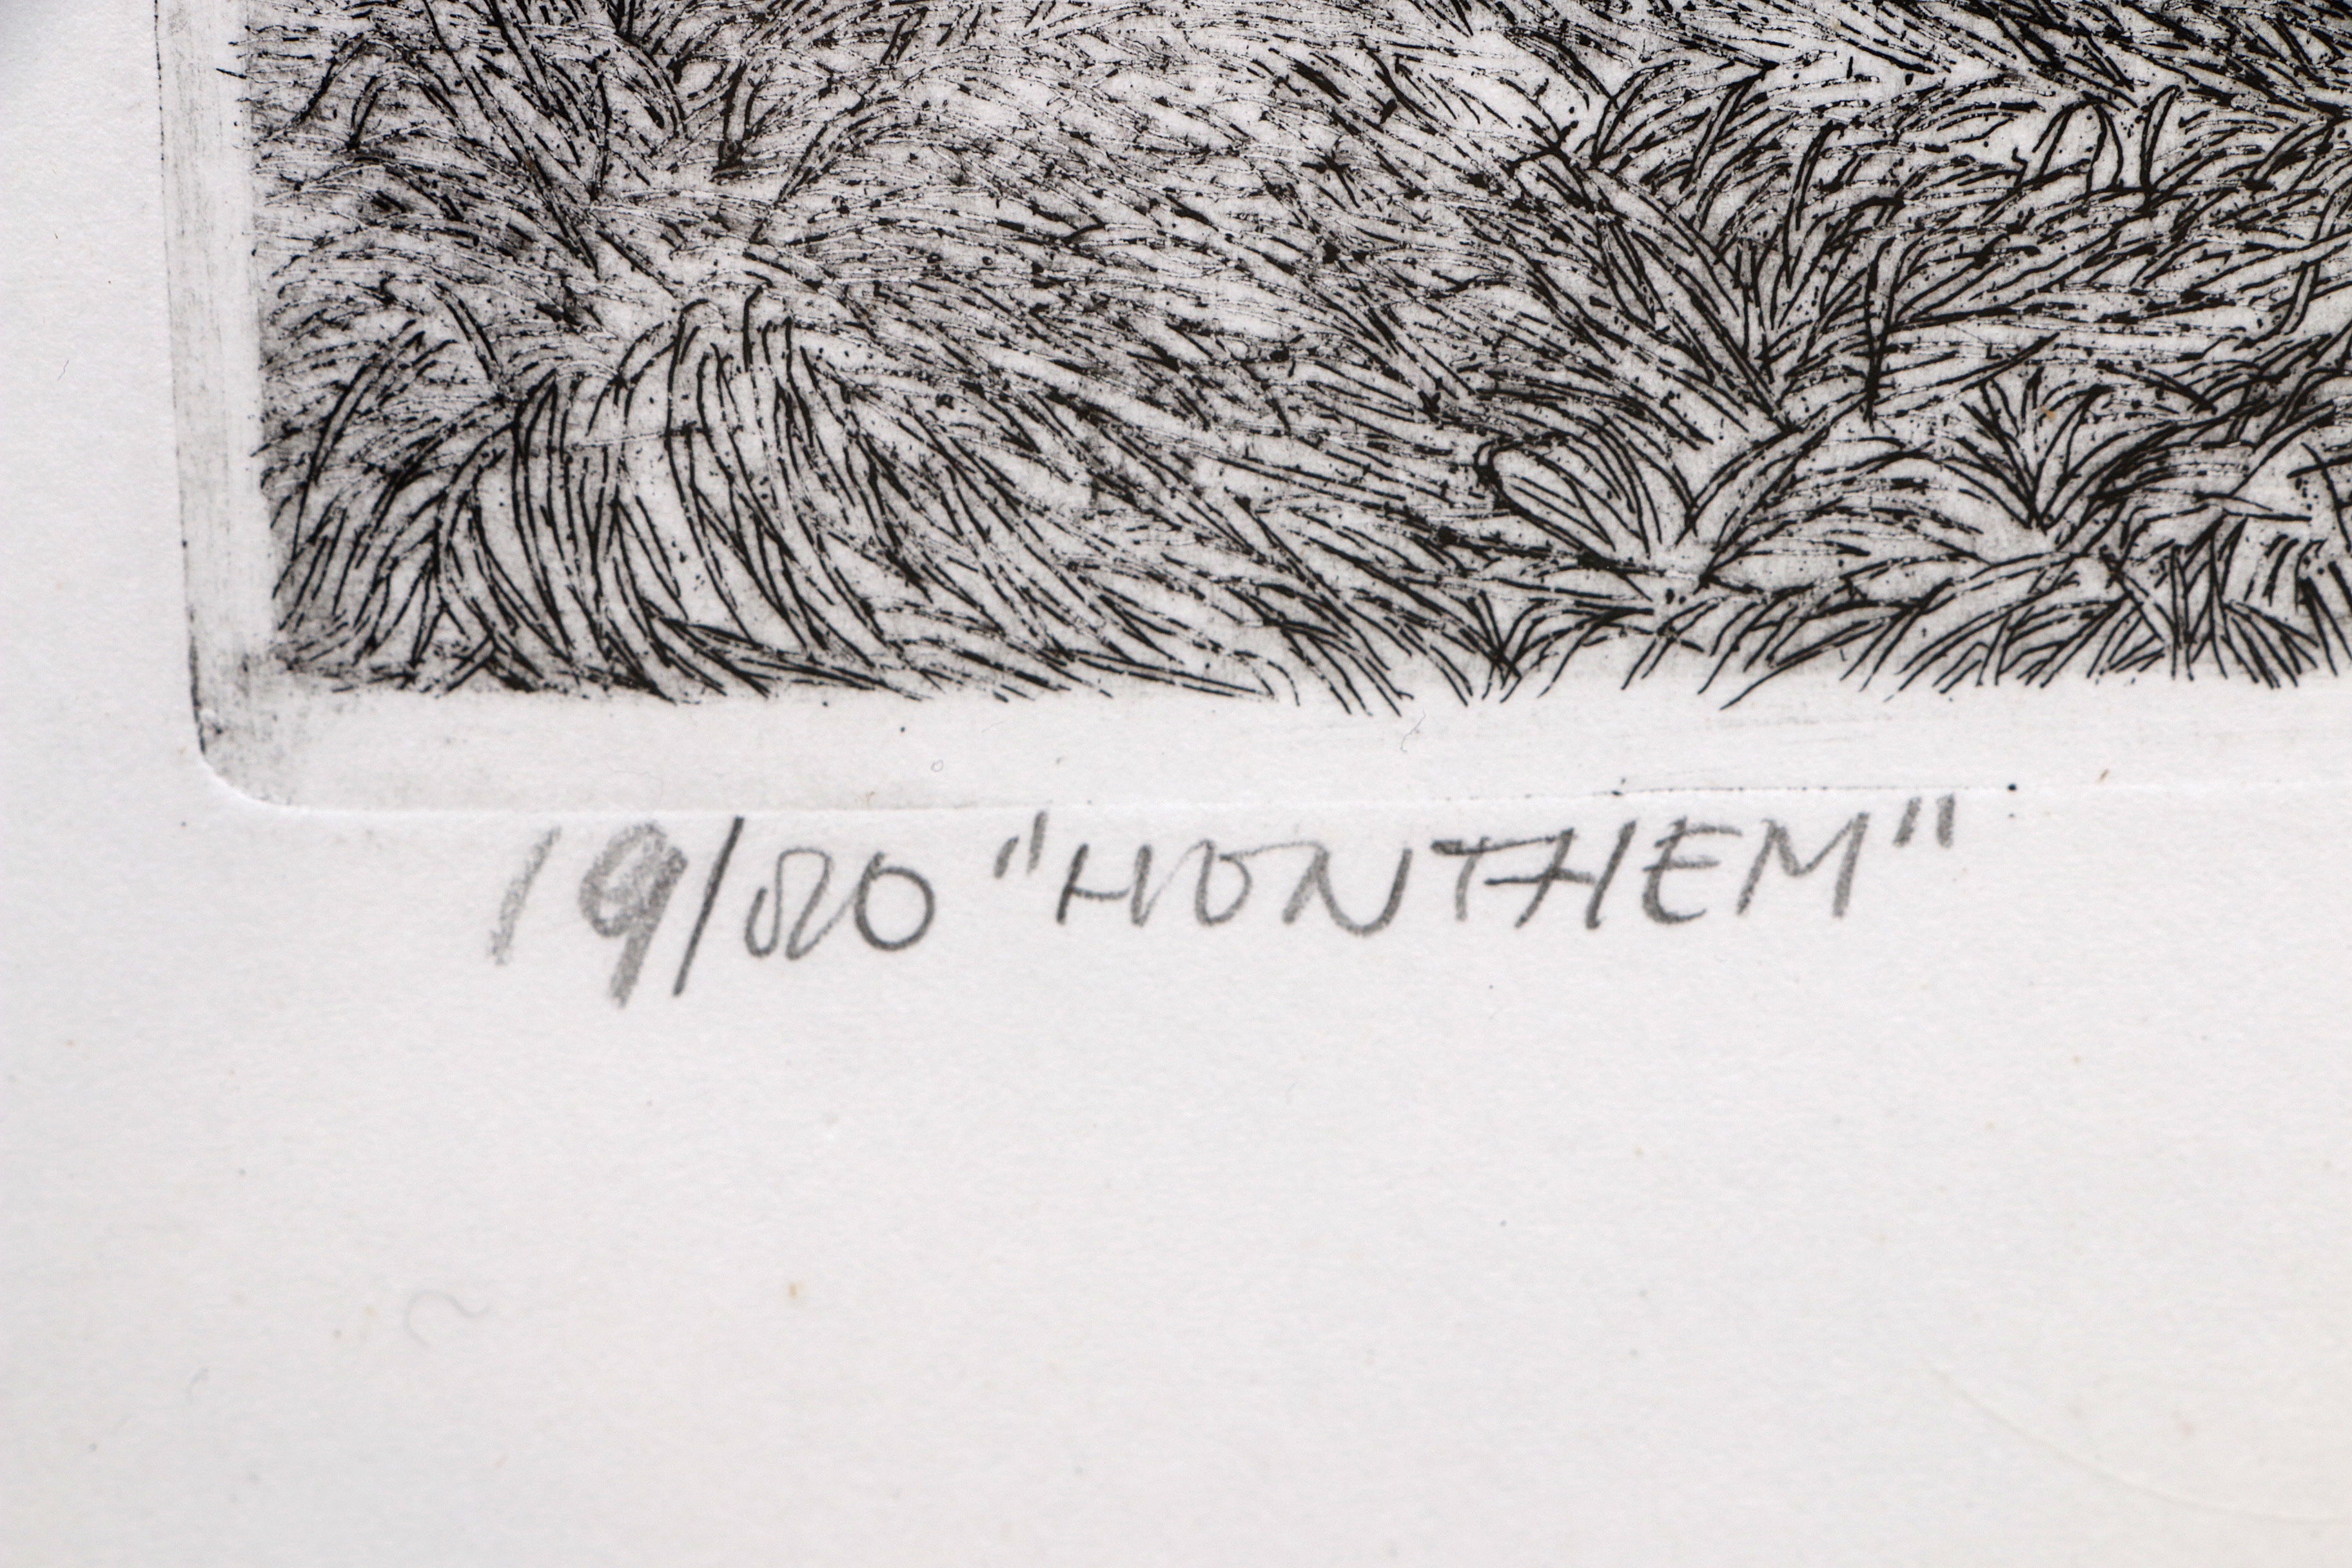 19/80 "HONTHEM"